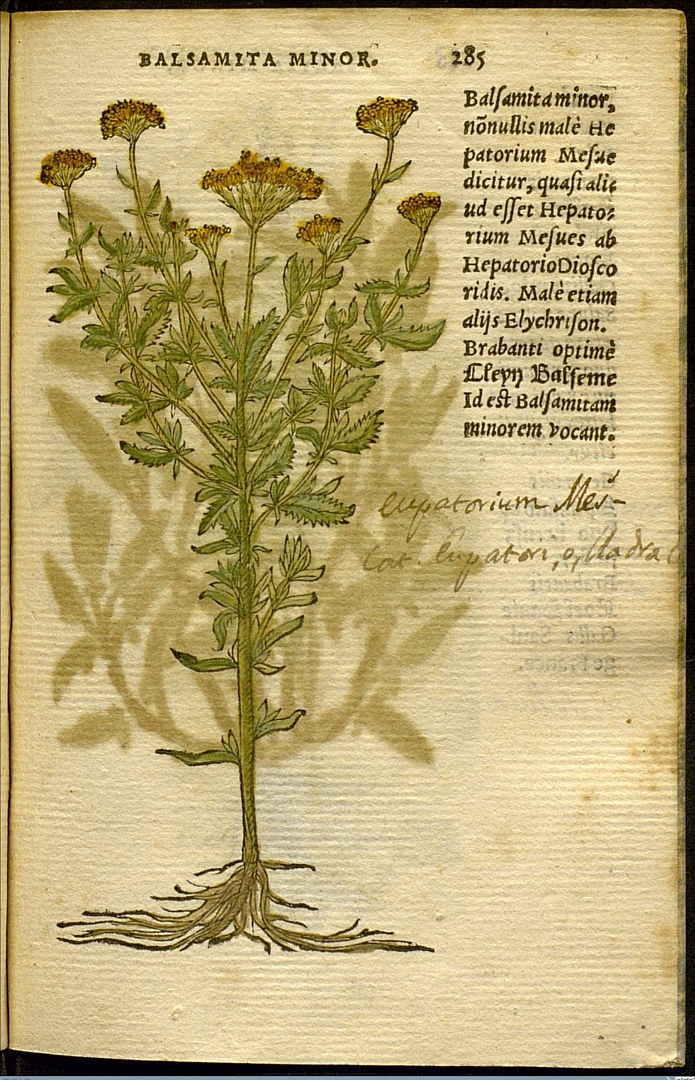 BALSAMITA MINOR. 285
Balſamita minor,
nõnullis malè He
patorium Meſue
dicitur, quaſi ali
ud eſſet Hepato⸗
rium Meſues ab
Hepatorio Dioſco
ridis. Malè etiam
alijs Elychriſon.
Brabanti optimè
Cleyn Balſeme
Id est Balſamitam
minorem vocant.
eupatorium Mes-